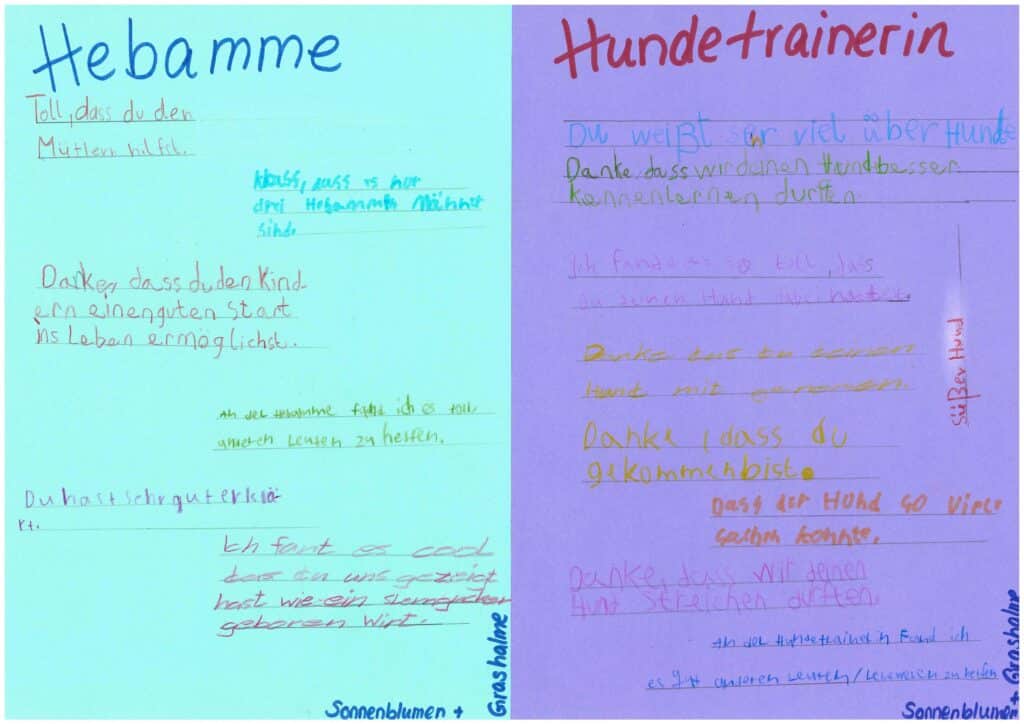 Hebamme
Toll, dass du den
Müttern hilfst.
Klass, dass es nur
drei Hebammen Männer
sind.
Danke, dass du den Kind-
ern einen guten Start
ins Leben ermöglichst.
An der Hebamme fand ich es toll
unseren Leuten zu helfen.
Du hast sehr gut erklä-
rt.
Ich fant es cool
das du uns gezeigt
hast wie ein
geboren wirt.
Sonnenblumen +
Grashalme
Hundetrainerin
Du weißt ser viel über Hunde
Danke, dass wir deinen Hund besser
kennenlernen durften
Ich fande es so toll, dass
du deinen Hund dabei hattest.
Danke das du deinen
Hunt mit genomen.
Süßer Hund
Danke, dass du
gekommen bist.
Dass der Hund so viele
sachen konnte.
Danke, dass wir deinen
Hunt streichen durften.
An der Hundetrainerin fand ich
es gut unseren Leuten/ zu helfen
Sonnenblumen + Grashalme